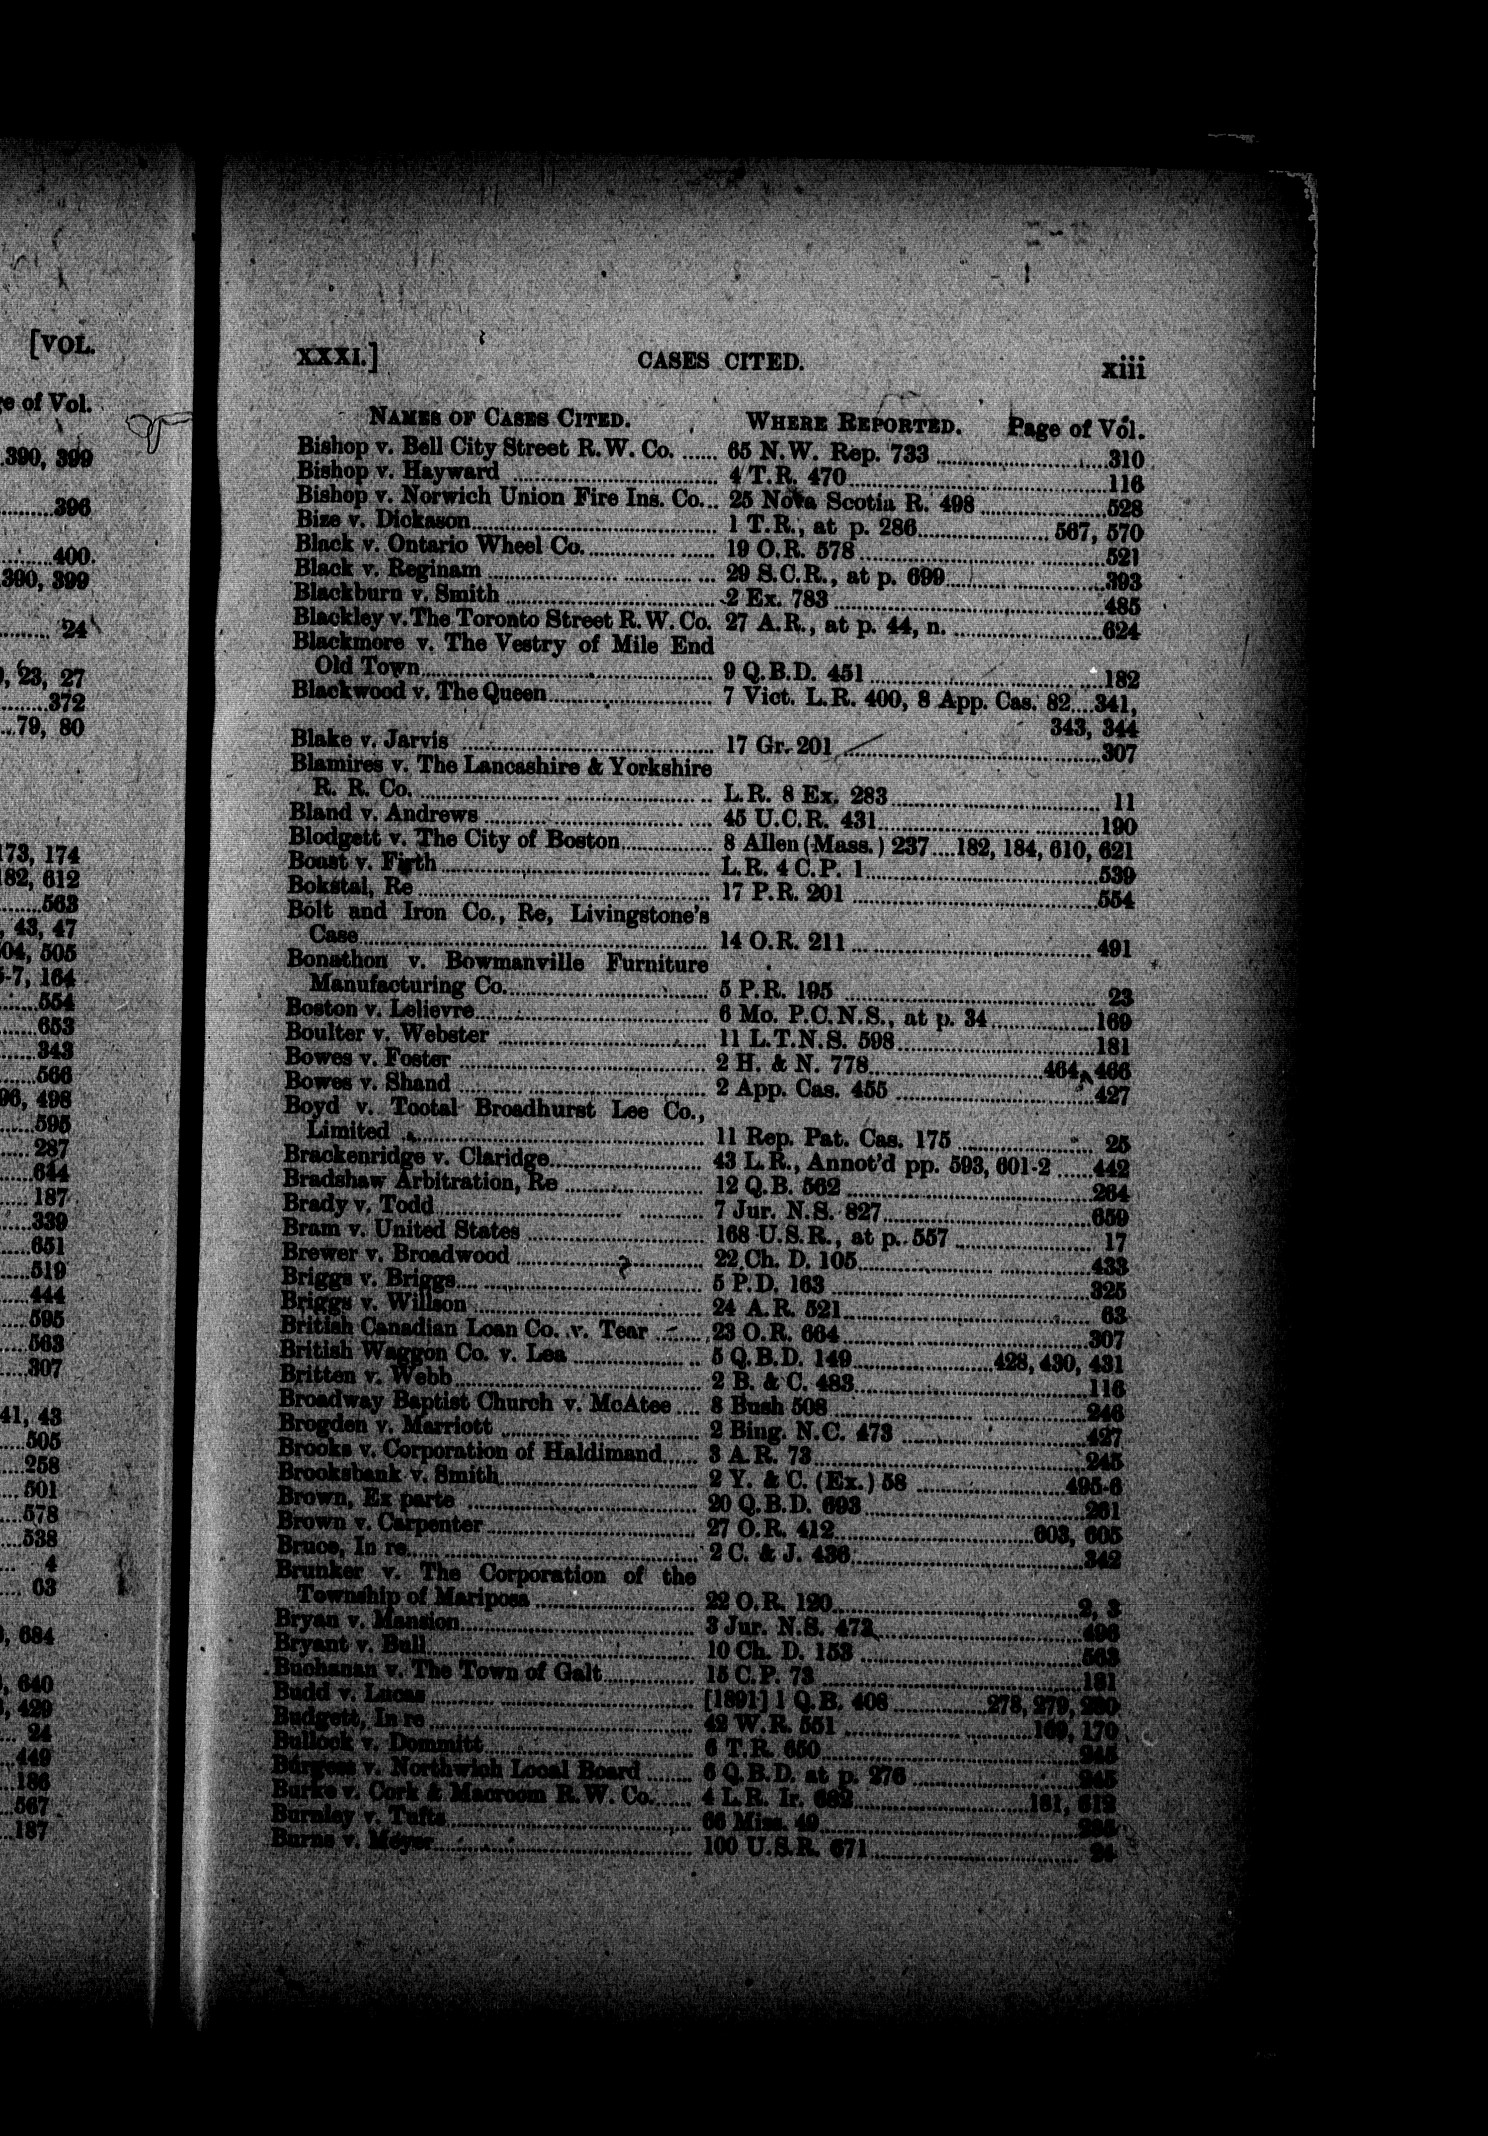 [VOL.
ge of Vol.
390, 399
396
400
390, 399
24
23, 27
372
79, 80
173, 174
182, 612
563
43, 47
504, 505
164
554
653
343
566
498
595
287
644
187
339
651
519
444
595
563
307
41, 43
505
258
501
578
538
4
63
684
640
429
24
449
186
567
187
XXXI.] CASES CITED. xiii
NAMES OF CASES CITED. WHERE REPORTED. Page of Vol.
Bishop v. Bell City Street R.W. Co. ...... 65 N.W. Rep. 733 ...... 310
Bishop v. Hayward ...... 4 T.R. 470 ...... 116
Bishop v. Norwich Union Fire Ins. Co... 25 Nova Scotia R. 498 ...... 528
Bize v. Dickason ...... 1 T.R., at p. 286 ...... 567, 570
Black v. Ontario Wheel Co. ...... 19 O.R. 578 ...... 521
Black v. Reginam ...... 29 S.C.R., at p. 699 ...... 393
Blackburn v. Smith ...... 2 Ex. 783 ...... 485
Blackley v. The Toronto Street R.W. Co. 27 A.R., at p. 44, n. ...... 624
Blackmore v. The Vestry of Mile End
Old Town ...... 9 Q.B.D. 451 ...... 182
Blackwood v. The Queen ...... 7 Vict. L.R. 400, 8 App. Cas. 82....341,
343, 344
Blake v. Jarvis ...... 17 Gr. 201 ...... 307
Blamires v. The Lancashire & Yorkshire
R. R. Co. ...... L.R. 8 Ex. 283 ...... 11
Bland v. Andrews ...... 45 U.C.R. 431 ...... 190
Blodgett v. The City of Boston ...... 8 Allen (Mass.) 237....182, 184, 610, 621
Boast v. Firth ...... L.R. 4 C.P. 1 ...... 539
Bokstal, Re ...... 17 P.R. 201 ...... 554
Bolt and Iron Co., Re, Livingstone's
Case ...... 14 O.R. 211 ...... 491
Bonathon v. Bowmanville Furniture
Manufacturing Co. ...... 5 P.R. 195 ...... 23
Boston v. Lelievre ...... 6 Mo. P.C.N.S., at p. 34 ...... 169
Boulter v. Webster ...... 11 L.T.N.S. 598 ...... 181
Bowes v. Foster ...... 2 H. & N. 778 ...... 464, 466
Bowes v. Shand ...... 2 App. Cas. 455 ...... 427
Boyd v. Tootal Broadhurst Lee Co.,
Limited ...... 11 Rep. Pat. Cas. 175 ...... 25
Brackenridge v. Claridge ...... 43 L.R., Annot'd pp. 593, 601-2 ...... 442
Bradshaw Arbitration, Re ...... 12 Q.B. 562 ...... 264
Brady v. Todd ...... 7 Jur. N.S. 827 ...... 659
Bram v. United States ...... 168 U.S.R., at p. 557 ...... 17
Brewer v. Broadwood ...... 22 Ch. D. 105 ...... 433
Briggs v. Briggs ...... 5 P.D. 163 ...... 325
Briggs v. Willson ...... 24 A.R. 521 ...... 63
British Canadian Loan Co. v. Tear ...... 23 O.R. 664 ...... 307
British Waggon Co. v. Lea ...... 5 Q.B.D. 149 ...... 428, 430, 431
Britten v. Webb ...... 2 B. & C. 483 ...... 116
Broadway Baptist Church v. McAtee .... 8 Bush 508 ...... 246
Brogden v. Marriott ...... 2 Bing. N.C. 473 ...... 427
Brooks v. Corporation of Haldimand ...... 3 A.R. 73 ...... 245
Brooksbank v. Smith ...... 2 Y. & C. (Ex.) 58 ...... 495-6
Brown, Ex parte ...... 20 Q.B.D. 693 ...... 261
Brown v. Carpenter ...... 27 O.R. 412 ...... 603, 605
Bruce, In re ...... 2 C. & J. 436 ...... 342
Brunker v. The Corporation of the
Township of Mariposa ...... 22 O.R. 120 ...... 2, 3
Bryan v. Mansion ...... 3 Jur. N.S. 473 ...... 496
Bryant v. Bull ...... 10 Ch. D. 153 ...... 563
Buchanan v. The Town of Galt ...... 15 C.P. 73 ...... 181
Budd v. Lucas ...... [1891] 1 Q.B. 408 ...... 278, 279, 280
Budgett, In re ...... 42 W.R. 551 ...... 169, 170
Bullock v. Dommitt ...... 6 T.R. 650 ...... 245
Burgess v. Northwich Local Board ...... 6 Q.B.D. at p. 276 ...... 245
Burke v. Cork & Macroom R.W. Co. ...... 4 L.R. Ir. 682 ...... 181, 612
Burnley v. Tufts ...... 66 Miss. 49 ......
Burns v. Meyer ...... 100 U.S.R. 671 ...... 24